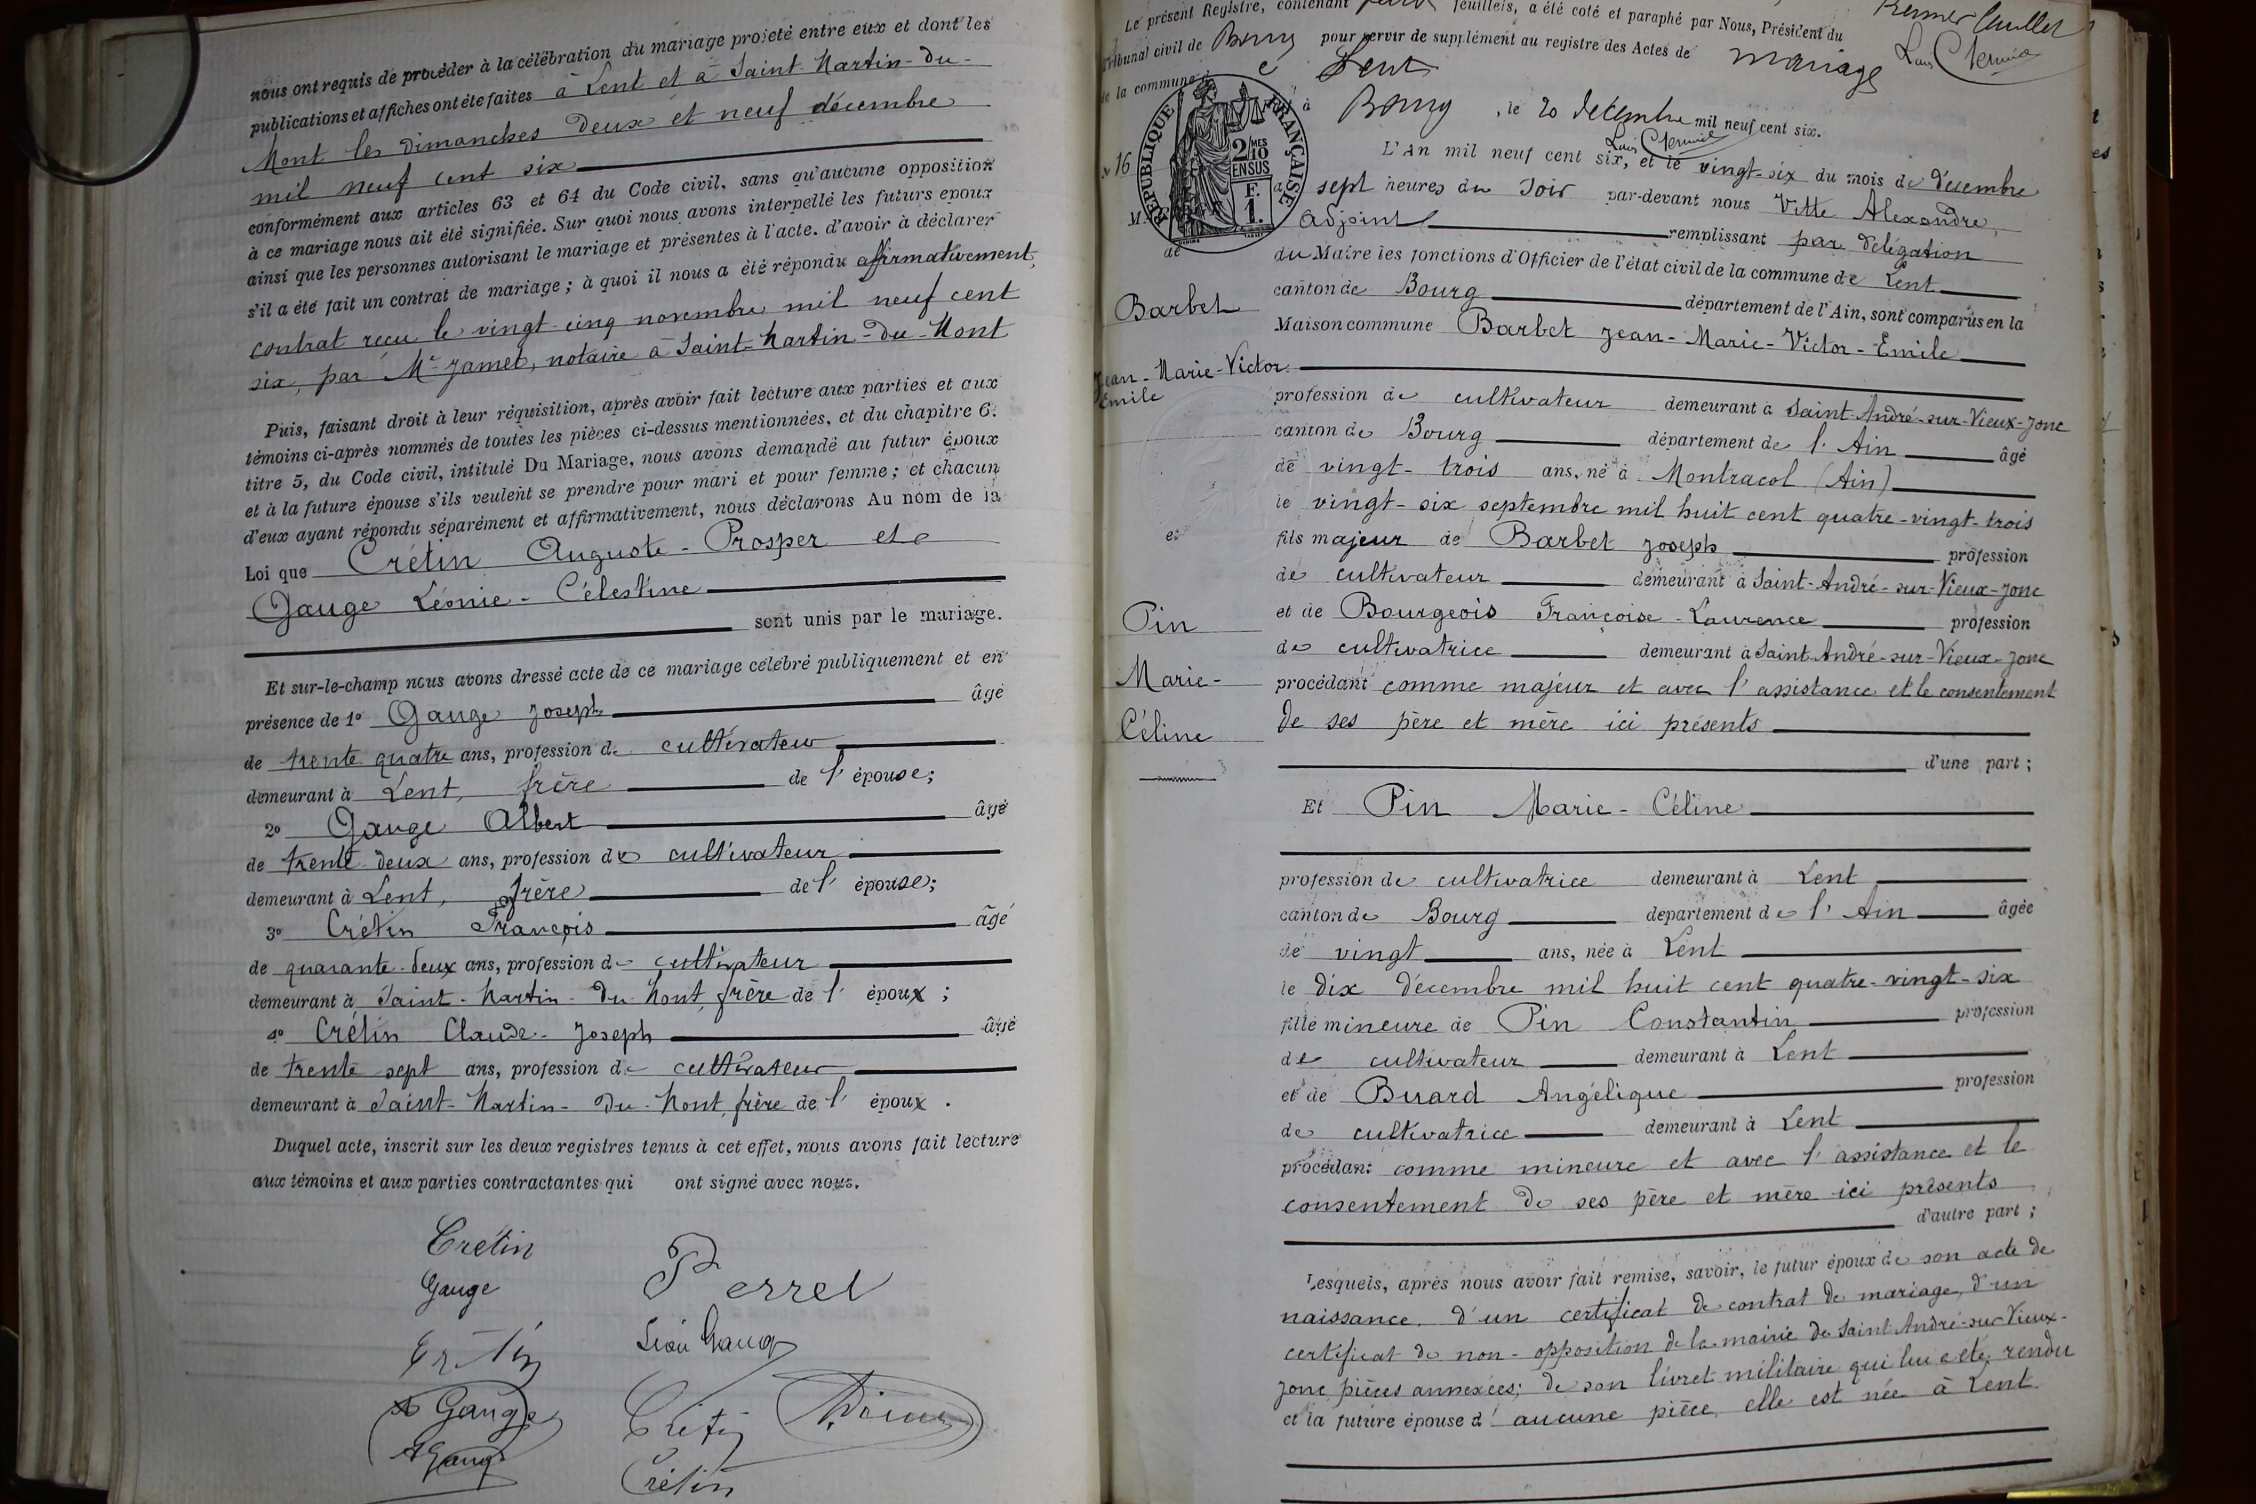 nous ont requis de procéder à la célébration du mariage projeté entre eux et dont les
publications et affiches ont été faites à Lent et à Saint-Martin-du-
Mont les dimanches deux et neuf décembre
mil neuf cent six
conformément aux articles 63 et 64 du Code civil, sans qu'aucune opposition
à ce mariage nous ait été signifiée. Sur quoi nous avons interpellé les futurs époux
ainsi que les personnes autorisant le mariage et présentes à l'acte, d'avoir à déclarer
s'il a été fait un contrat de mariage; à quoi il nous a été répondu affirmativement,
contrat reçu le vingt-cinq novembre mil neuf cent
six, par Me Jamet, notaire à Saint-Martin-du-Mont
Puis, faisant droit à leur réquisition, après avoir fait lecture aux parties et aux
témoins ci-après nommés de toutes les pièces ci-dessus mentionnées, et du chapitre 6.
titre 5, du Code civil, intitulé Du Mariage, nous avons demandé au futur époux
et à la future épouse s'ils veulent se prendre pour mari et pour femme; et chacun
d'eux ayant répondu séparément et affirmativement, nous déclarons Au nom de la
Loi que Crétin Auguste-Prosper et
Gauge Léonie-Célestine
sont unis par le mariage.
Et sur-le-champ nous avons dressé acte de ce mariage célébré publiquement et en
présence de 1° Gauge Joseph âgé
de trente quatre ans, profession de cultivateur
demeurant à Lent, frère de l'épouse;
2° Gauge Albert âgé
de trente deux ans, profession de cultivateur
demeurant à Lent, frère de l'épouse;
3° Crétin François âgé
de quarante-deux ans, profession de cultivateur
demeurant à Saint-Martin-du-Mont, frère de l'époux;
4° Crétin Claude-Joseph âgé
de trente sept ans, profession de cultivateur
demeurant à Saint-Martin-du-Mont, frère de l'époux.
Duquel acte, inscrit sur les deux registres tenus à cet effet, nous avons fait lecture
aux témoins et aux parties contractantes qui ont signé avec nous.
Crétin
Gauge
Perret
Crétin
A Gauge
Crétin
A Gauge
Crétin
Le présent Registre, contenant feuillets, a été coté et paraphé par Nous, Président du
Premier feuillet
Tribunal civil de Bourg pour servir de supplément au registre des Actes de mariage
de la commune de Lent
à Bourg, le 20 Décembre mil neuf cent six.
RÉPUBLIQUE FRANÇAISE
2/10 MES
EN SUS
F.
1.
N° 16
M.
de
Barbet
Jean-Marie-Victor
Emile
et
Pin
Marie-
Céline
L'An mil neuf cent six, et le vingt-six du mois de décembre
à sept heures du soir par-devant nous Vitte Alexandre,
Adjoint remplissant par délégation
du Maire les fonctions d'Officier de l'état civil de la commune de Lent
canton de Bourg département de l'Ain, sont comparus en la
Maison commune Barbet Jean-Marie-Victor-Emile
profession de cultivateur demeurant à Saint-André-sur-Vieux-Jonc
canton de Bourg département de l'Ain âgé
de vingt-trois ans, né à Montracol (Ain)
le vingt-six septembre mil huit cent quatre-vingt-trois
fils majeur de Barbet Joseph profession
de cultivateur demeurant à Saint-André-sur-Vieux-Jonc
et de Bourgeois Françoise-Laurence profession
de cultivatrice demeurant à Saint-André-sur-Vieux-Jonc
procédant comme majeur et avec l'assistance et le consentement
de ses père et mère ici présents
d'une part;
Et Pin Marie-Céline
profession de cultivatrice demeurant à Lent
canton de Bourg département de l'Ain âgée
de vingt ans, née à Lent
le dix décembre mil huit cent quatre-vingt-six
fille mineure de Pin Constantin profession
de cultivateur demeurant à Lent
et de Buard Angélique profession
de cultivatrice demeurant à Lent
procédant comme mineure et avec l'assistance et le
consentement de ses père et mère ici présents
d'autre part;
Lesquels, après nous avoir fait remise, savoir, le futur époux de son acte de
naissance, d'un certificat de contrat de mariage, d'un
certificat de non-opposition de la mairie de Saint André-sur-Vieux-
Jonc pièces annexées; de son livret militaire qui lui a été rendu
et la future épouse d'aucune pièce, elle est née à Lent